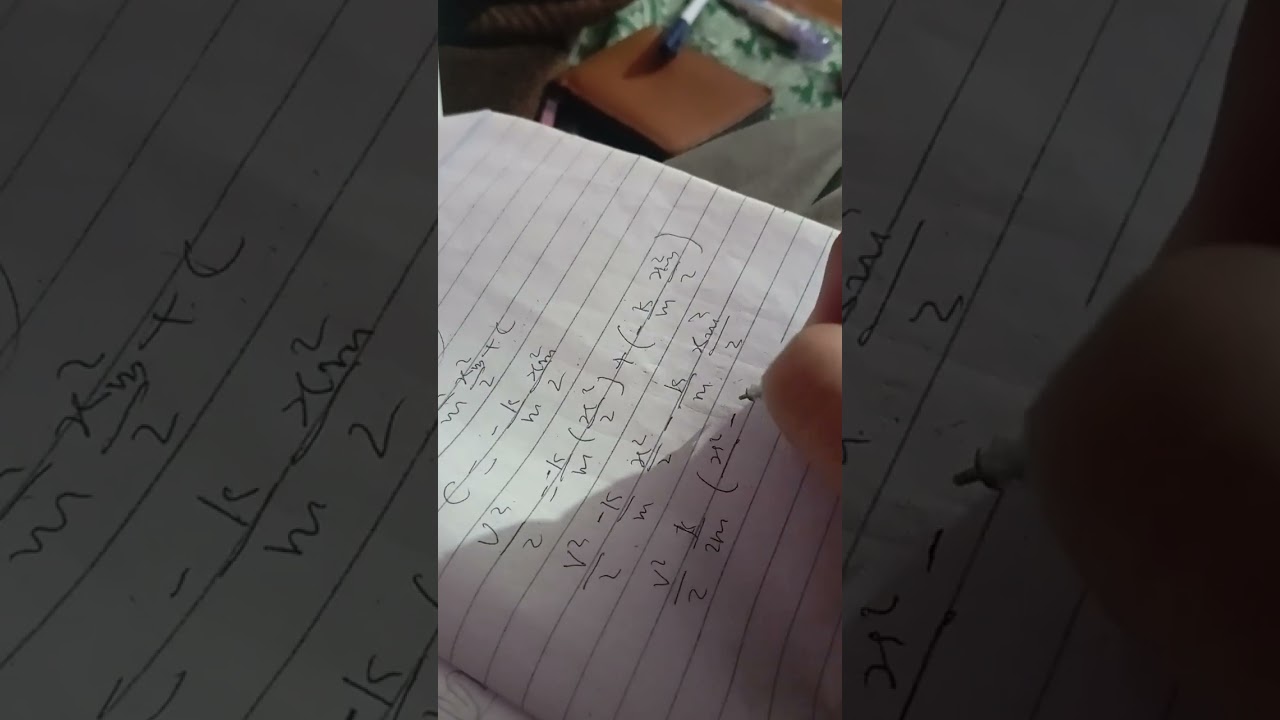 m x²m/2 + C
C = - k/m x²m/2
v²/2 = -k/m (x²/2) + (- k/m x²m/2)
v²/2 -k/m x²/2 - k/m x²m/2
v²/2 k/2m (x² -